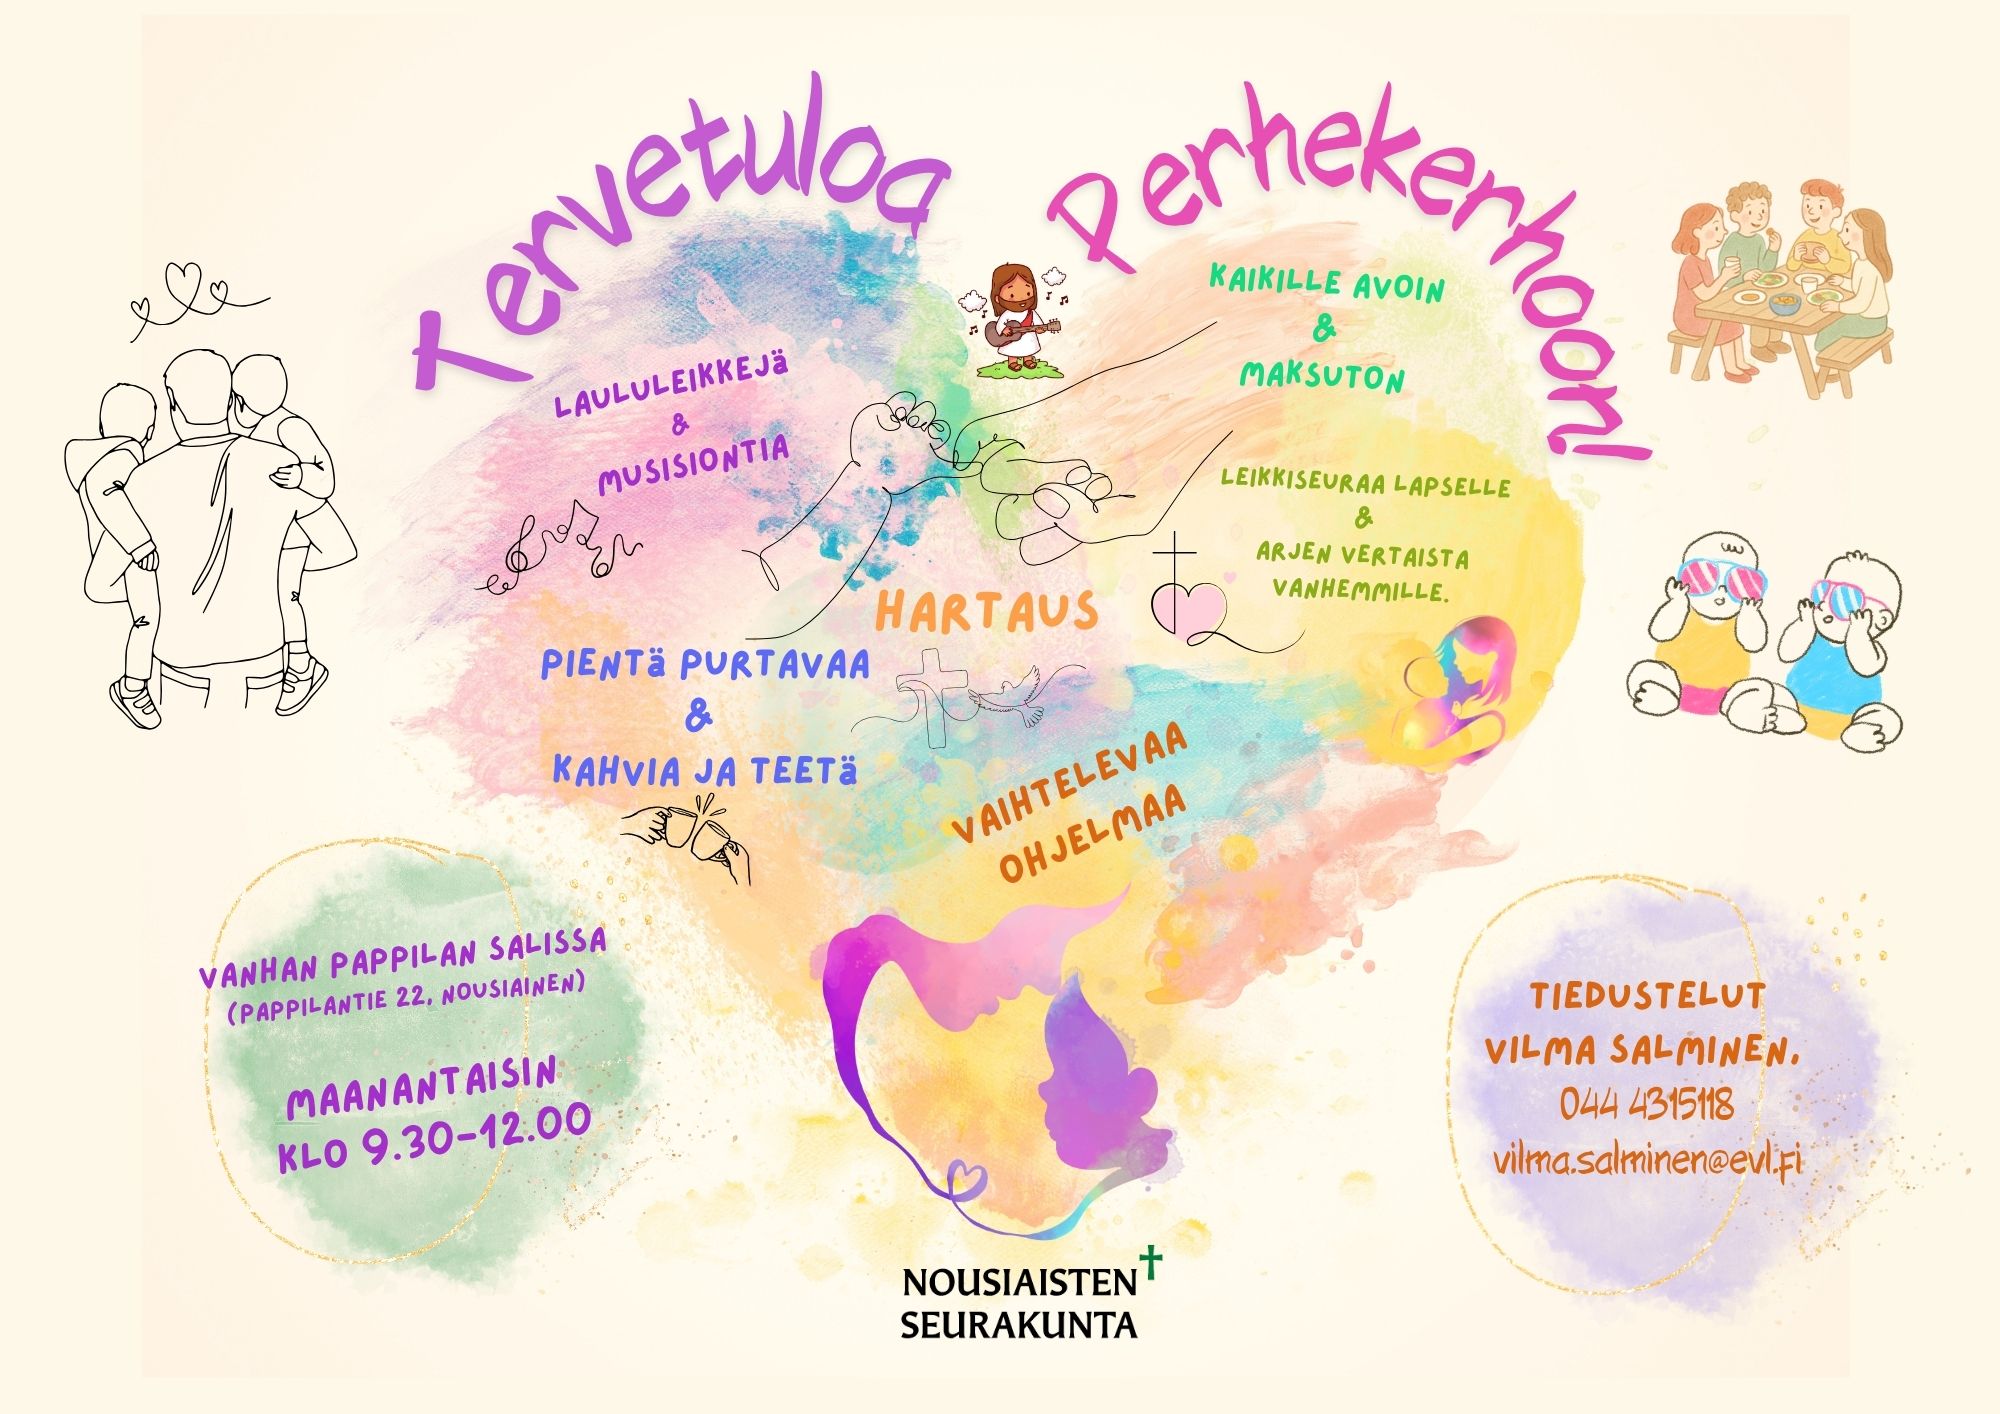 Tervetuloa Perhekerhoon!
LAULULEIKKEJä
&
MUSISIONTIA
KAIKILLE AVOIN
&
MAKSUTON
LEIKKISEURAA LAPSELLE
&
ARJEN VERTAISTA
VANHEMMILLE.
HARTAUS
PIENTä PURTAVAA
&
KAHVIA JA TEETä
VAIHTELEVAA
OHJELMAA
VANHAN PAPPILAN SALISSA
(PAPPILANTIE 22, NOUSIAINEN)
MAANANTAISIN
KLO 9.30-12.00
TIEDUSTELUT
VILMA SALMINEN,
044 4315118
vilma.salminen@evl.fi
NOUSIAISTEN
SEURAKUNTA